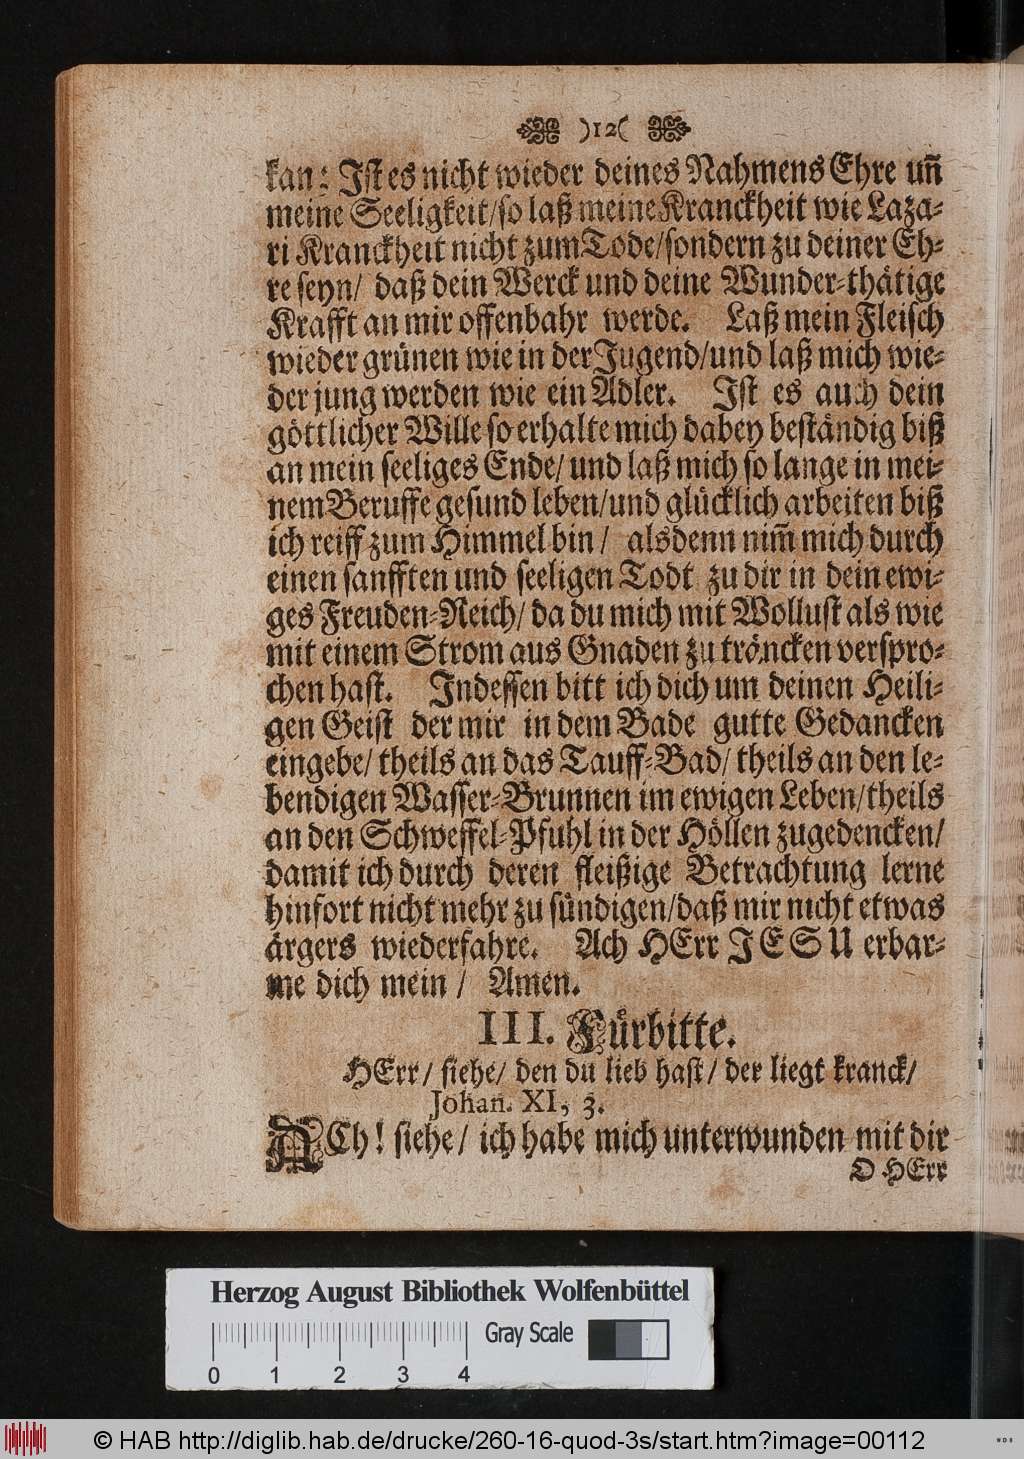 )12(
kan: Ist es nicht wieder deines Nahmens Ehre uñ
meine Seeligkeit/so laß meine Kranckheit wie Laza-
ri Kranckheit nicht zum Tode/sondern zu deiner Eh-
re seyn/ daß dein Werck und deine Wunder-thätige
Krafft an mir offenbahr werde. Laß mein Fleisch
wieder grünen wie in der Jugend/und laß mich wie-
der jung werden wie ein Adler. Ist es auch dein
göttlicher Wille so erhalte mich dabey beständig biß
an mein seeliges Ende/ und laß mich so lange in mei-
nem Beruffe gesund leben/und glücklich arbeiten biß
ich reiff zum Himmel bin/ alsdenn nim̃ mich durch
einen sanfften und seeligen Todt zu dir in dein ewi-
ges Freuden-Reich/ da du mich mit Wollust als wie
mit einem Strom aus Gnaden zu träncken verspro-
chen hast. Indessen bitt ich dich um deinen Heili-
gen Geist der mir in dem Bade gutte Gedancken
eingebe/ theils an das Tauff-Bad/ theils an den le-
bendigen Wasser-Brunnen im ewigen Leben/theils
an den Schweffel-Pfuhl in der Höllen zugedencken/
damit ich durch deren fleißige Betrachtung lerne
hinfort nicht mehr zu sündigen/daß mir nicht etwas
ärgers wiederfahre. Ach HErr JESU erbar-
me dich mein/ Amen.
III. Fürbitte.
HErr/ siehe/ den du lieb hast/ der liegt kranck/
Johan. XI, 3.
ACh! siehe/ ich habe mich unterwunden mit dir
O HErr
Herzog August Bibliothek Wolfenbüttel
Gray Scale
0 1 2 3 4
© HAB http://diglib.hab.de/drucke/260-16-quod-3s/start.htm?image=00112